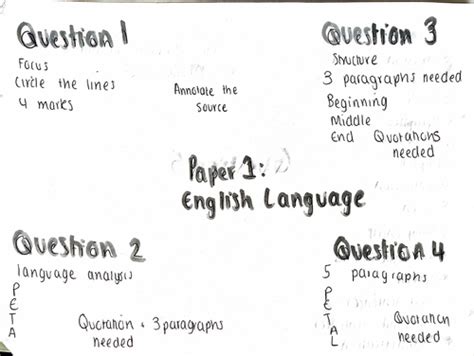 Question 1
Focus
Circle the lines
4 marks
Annotate the
source
Question 3
Structure
3 paragraphs needed
Beginning
Middle
End Quotations
needed
Paper 1:
English Language
Question 2
language analysis
P
E
T
A
Quotation + 3 paragraphs
needed
Question 4
5 paragraphs
P
E
T
A
L
Quotation
needed